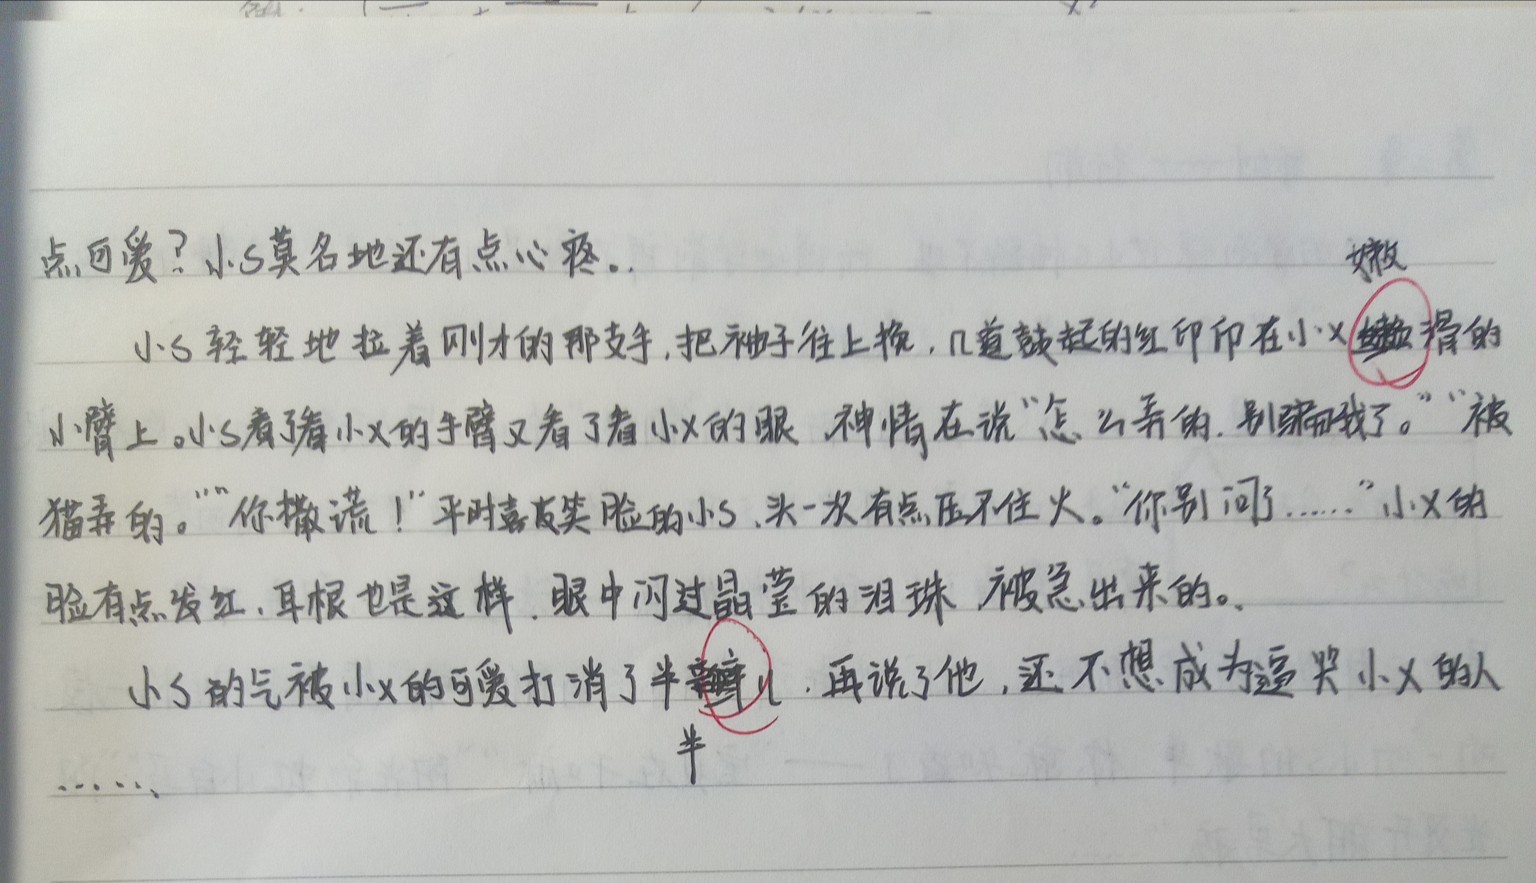 点可爱？小S莫名地还有点心疼。
嫩
小S轻轻地拉着刚才的那支手，把袖子往上挽，几道鼓起的红印印在小X滑的
小臂上。小S看了看小X的手臂又看了看小X的眼，神情在说“怎么弄的，别骗我了。”“被
猫弄的。”“你撒谎！”平时喜皮笑脸的小S，头一次有点压不住火。“你别问了……”小X的
脸有点发红，耳根也是这样，眼中闪过晶莹的泪珠，被急出来的。
小S的气被小X的可爱打消了半儿，再说了他，还不想成为逼哭小X的人
半
……